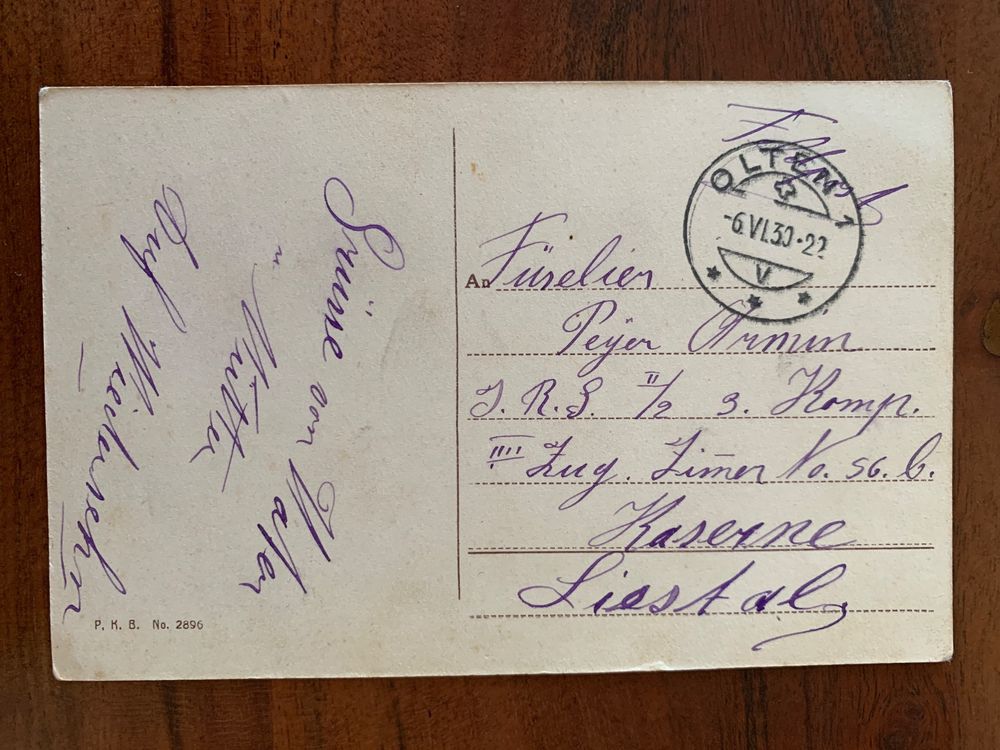 Grüsse von Vater
u. Mutter
Auf Wiedersehn
P. K. B. No. 2896
Feldpost
OLTEN 1
-6.VI.30-22
V
An Füselier
Peyer Armin
I. R. S. II/2 3. Komp.
IIII Zug. Zimer No. 56. b.
Kaserne
Liestal